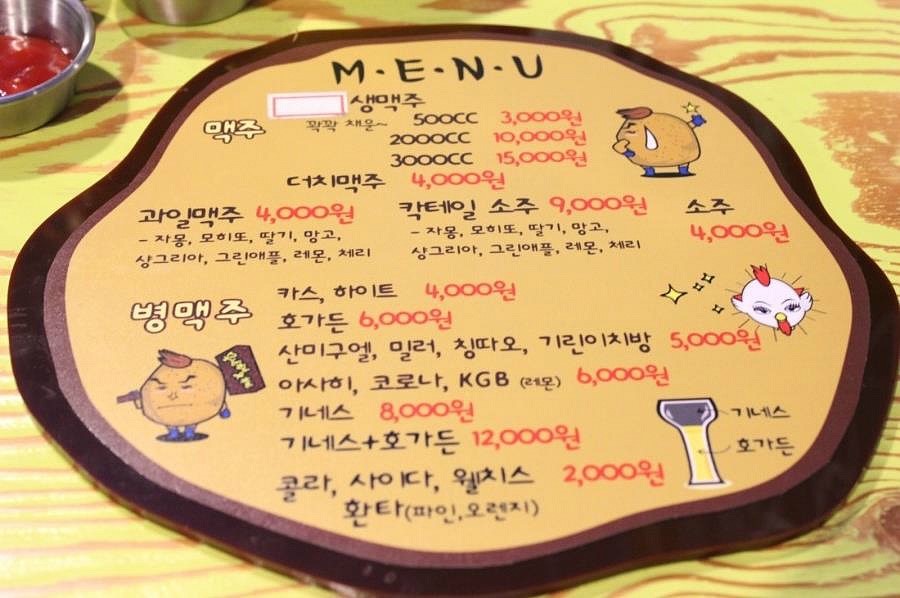 M·E·N·U
생맥주
맥주 꽉꽉 채운~ 500CC 3,000원
2000CC 10,000원
3000CC 15,000원
더치맥주 4,000원
과일맥주 4,000원
- 자몽, 모히또, 딸기, 망고,
샹그리아, 그린애플, 레몬, 체리
칵테일 소주 9,000원
- 자몽, 모히또, 딸기, 망고,
샹그리아, 그린애플, 레몬, 체리
소주
4,000원
병맥주
카스, 하이트 4,000원
호가든 6,000원
산미구엘, 밀러, 칭따오, 기린이치방 5,000원
아사히, 코로나, KGB (레몬) 6,000원
기네스 8,000원
기네스+호가든 12,000원
기네스
호가든
콜라, 사이다, 웰치스 2,000원
환타(파인,오렌지)